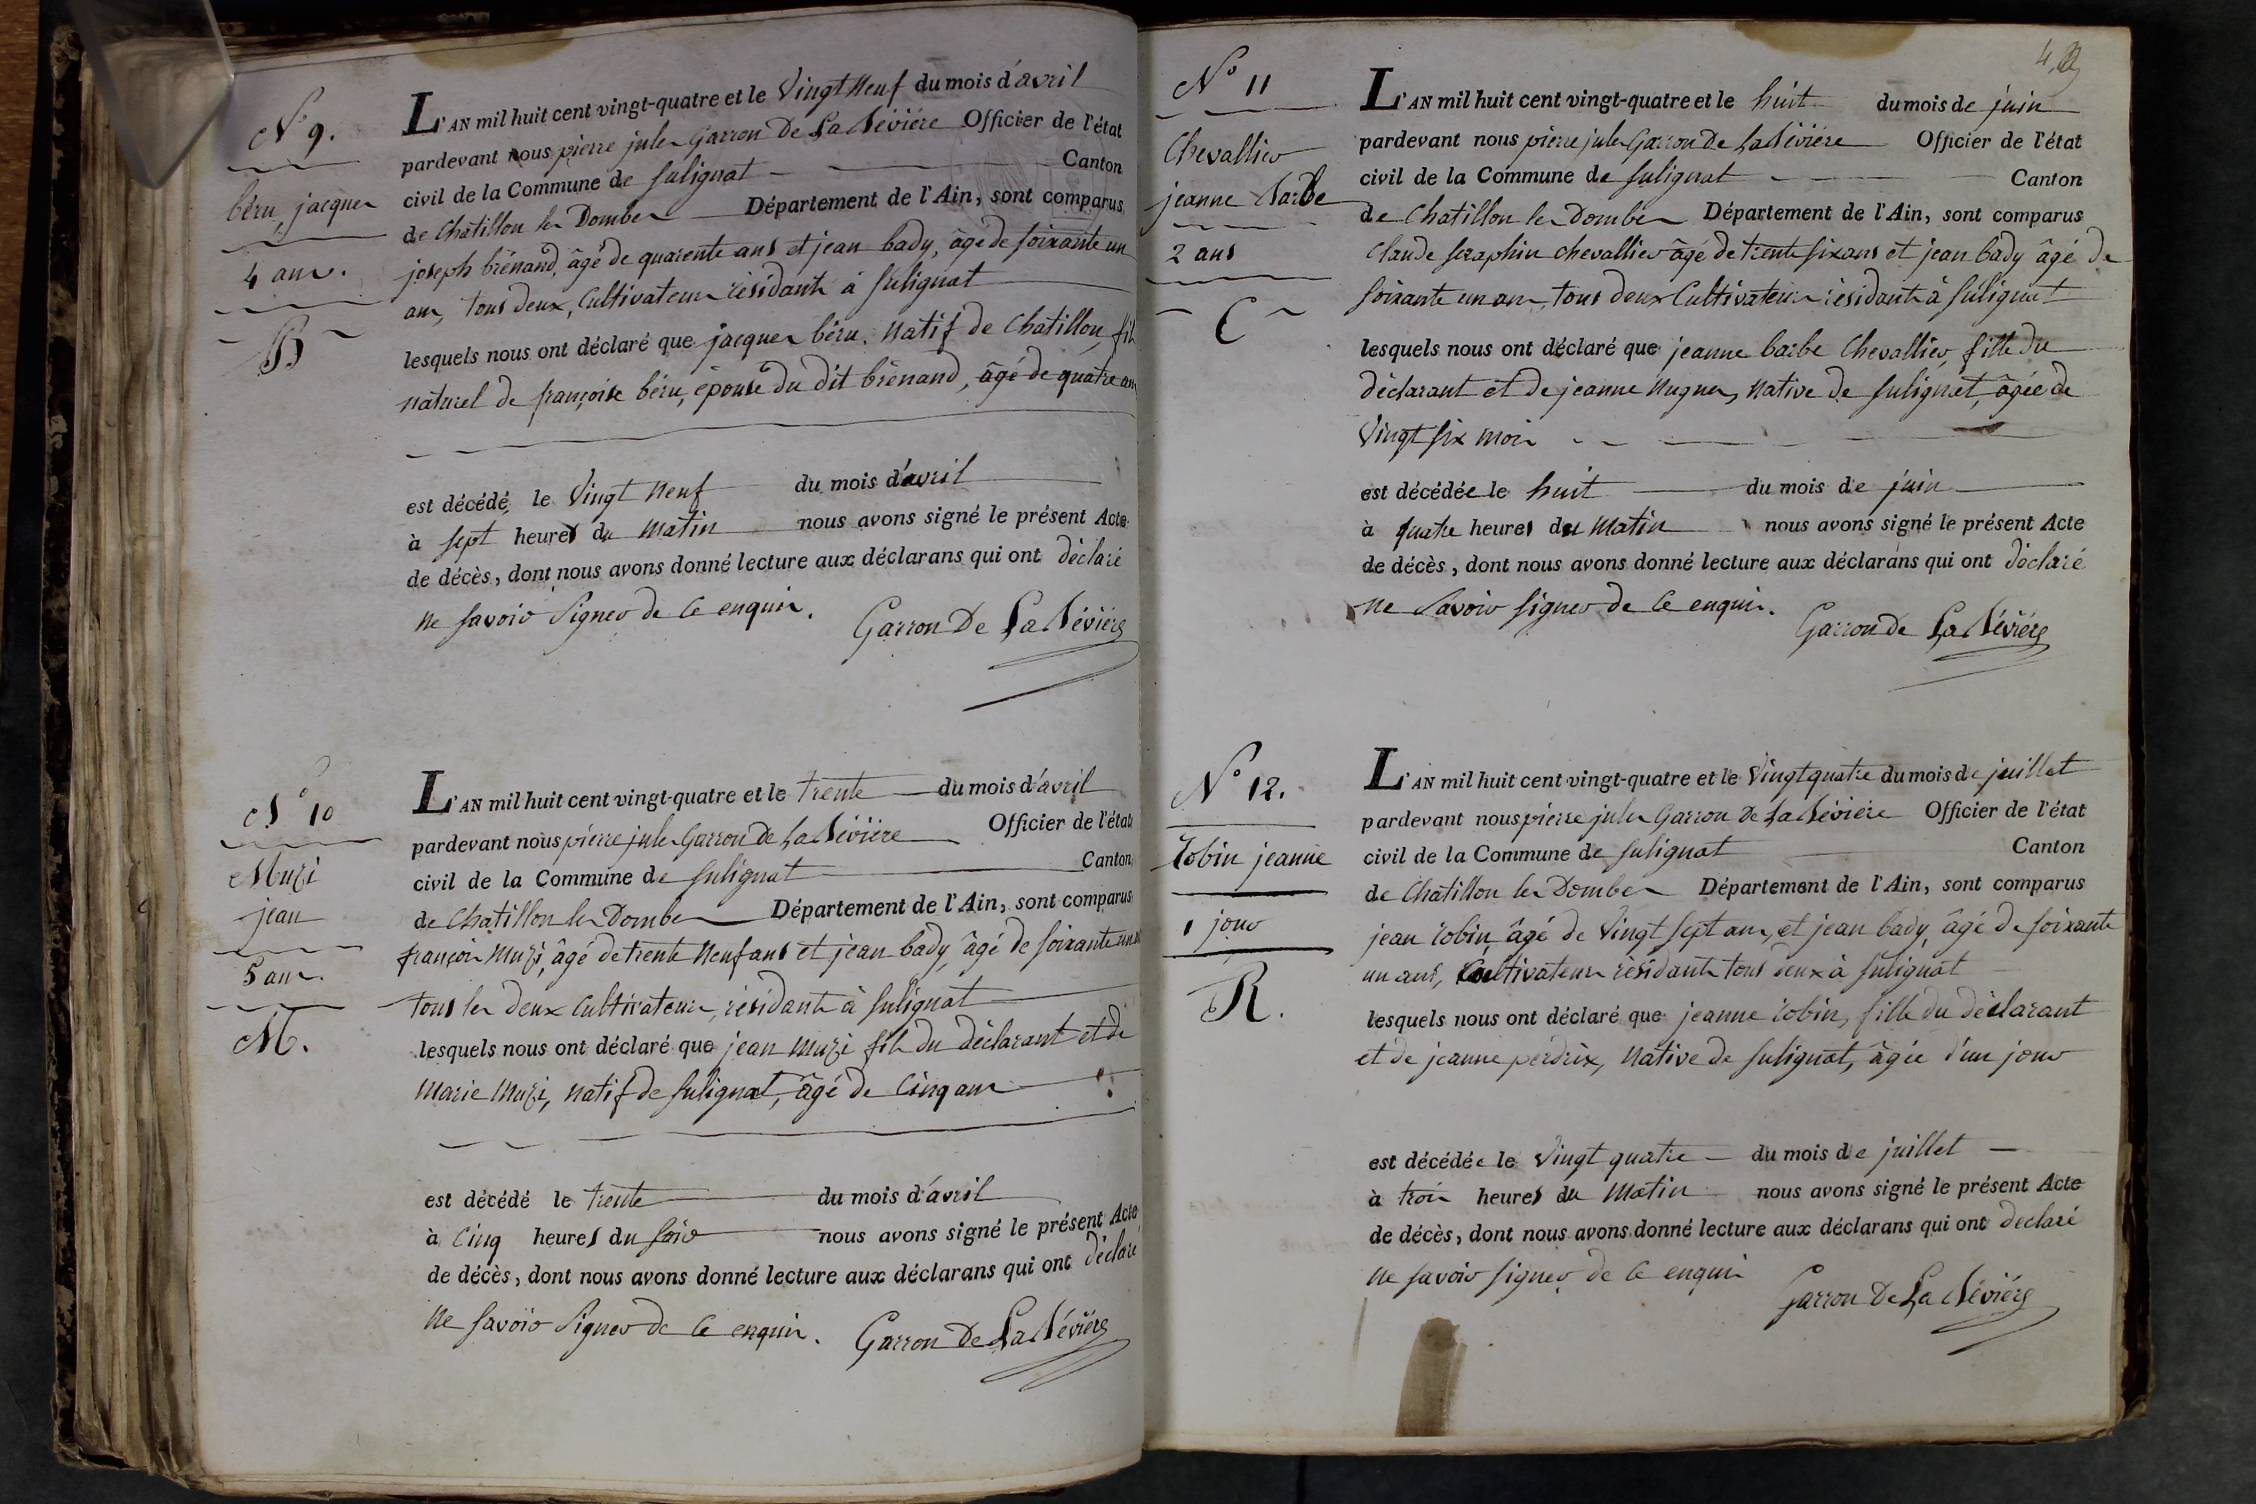 N° 9.
béru jacques
4 ans.
B
L'AN mil huit cent vingt-quatre et le vingt neuf du mois d'avril
pardevant nous pierre jules Garron De La Bévière Officier de l'état
civil de la Commune de sulignat Canton
de Chatillon les Dombes Département de l'Ain, sont comparus
joseph brénand, âgé de quarente ans et jean bady, âgé de soixante un
ans, tous deux, Cultivateurs résidants à sulignat
lesquels nous ont déclaré que jacques béru, natif de Chatillon, fils
naturel de françoise béru, épouse du dit brénand, âgé de quatre ans
est décédé le vingt neuf du mois d'avril
à sept heures du matin nous avons signé le présent Acte
de décès, dont nous avons donné lecture aux déclarans qui ont déclaré
ne savoir signer de ce enquis.
Garron De La Bévière
N° 10
Muzi
jean
5 ans.
M.
L'AN mil huit cent vingt-quatre et le trente du mois d'avril
pardevant nous pierre jules Garron de La Bévière Officier de l'état
civil de la Commune de sulignat Canton
de Chatillon les Dombes Département de l'Ain, sont comparus
françois Muzi, âgé de trente neuf ans et jean bady, âgé de soixante un
tous les deux Cultivateurs, résidants à sulignat
lesquels nous ont déclaré que jean Muzi fils du déclarant et de
Marie Muzi, natif de sulignat, âgé de Cinq ans
est décédé le trente du mois d'avril
à Cinq heures du soir nous avons signé le présent Acte
de décès, dont nous avons donné lecture aux déclarans qui ont déclaré
ne savoir signer de ce enquis.
Garron De La Bévière
N° 11
Chevallier
jeanne Barbe
2 ans
C
L'AN mil huit cent vingt-quatre et le huit du mois de juin
pardevant nous pierre jules Garron De La Bévière Officier de l'état
civil de la Commune de sulignat Canton
de Chatillon les Dombes Département de l'Ain, sont comparus
Claude seraphin chevallier âgé de trente six ans et jean bady âgé de
soixante un ans, tous deux Cultivateurs résidants à sulignat
lesquels nous ont déclaré que jeanne barbe Chevallier, fille du
déclarant et de jeanne Nugues, native de sulignat, âgée de
vingt six mois
est décédée le huit du mois de juin
à quatre heures du matin nous avons signé le présent Acte
de décès, dont nous avons donné lecture aux déclarans qui ont déclaré
ne savoir signer de ce enquis.
Garron de La Bévière
N° 12.
Robin jeanne
1 jour
R.
L'AN mil huit cent vingt-quatre et le vingt quatre du mois de juillet
pardevant nous pierre jules Garron De La Bévière Officier de l'état
civil de la Commune de sulignat Canton
de Chatillon les Dombes Département de l'Ain, sont comparus
jean robin, âgé de vingt sept ans, et jean bady, âgé de soixante
un ans, Cultivateurs résidants tous deux à sulignat
lesquels nous ont déclaré que jeanne robin, fille du déclarant
et de jeanne perdrix, native de sulignat, âgée d'un jour
est décédée le vingt quatre du mois de juillet
à trois heures du matin nous avons signé le présent Acte
de décès, dont nous avons donné lecture aux déclarans qui ont declaré
ne savoir signer de ce enquis
Garron De La Bévière